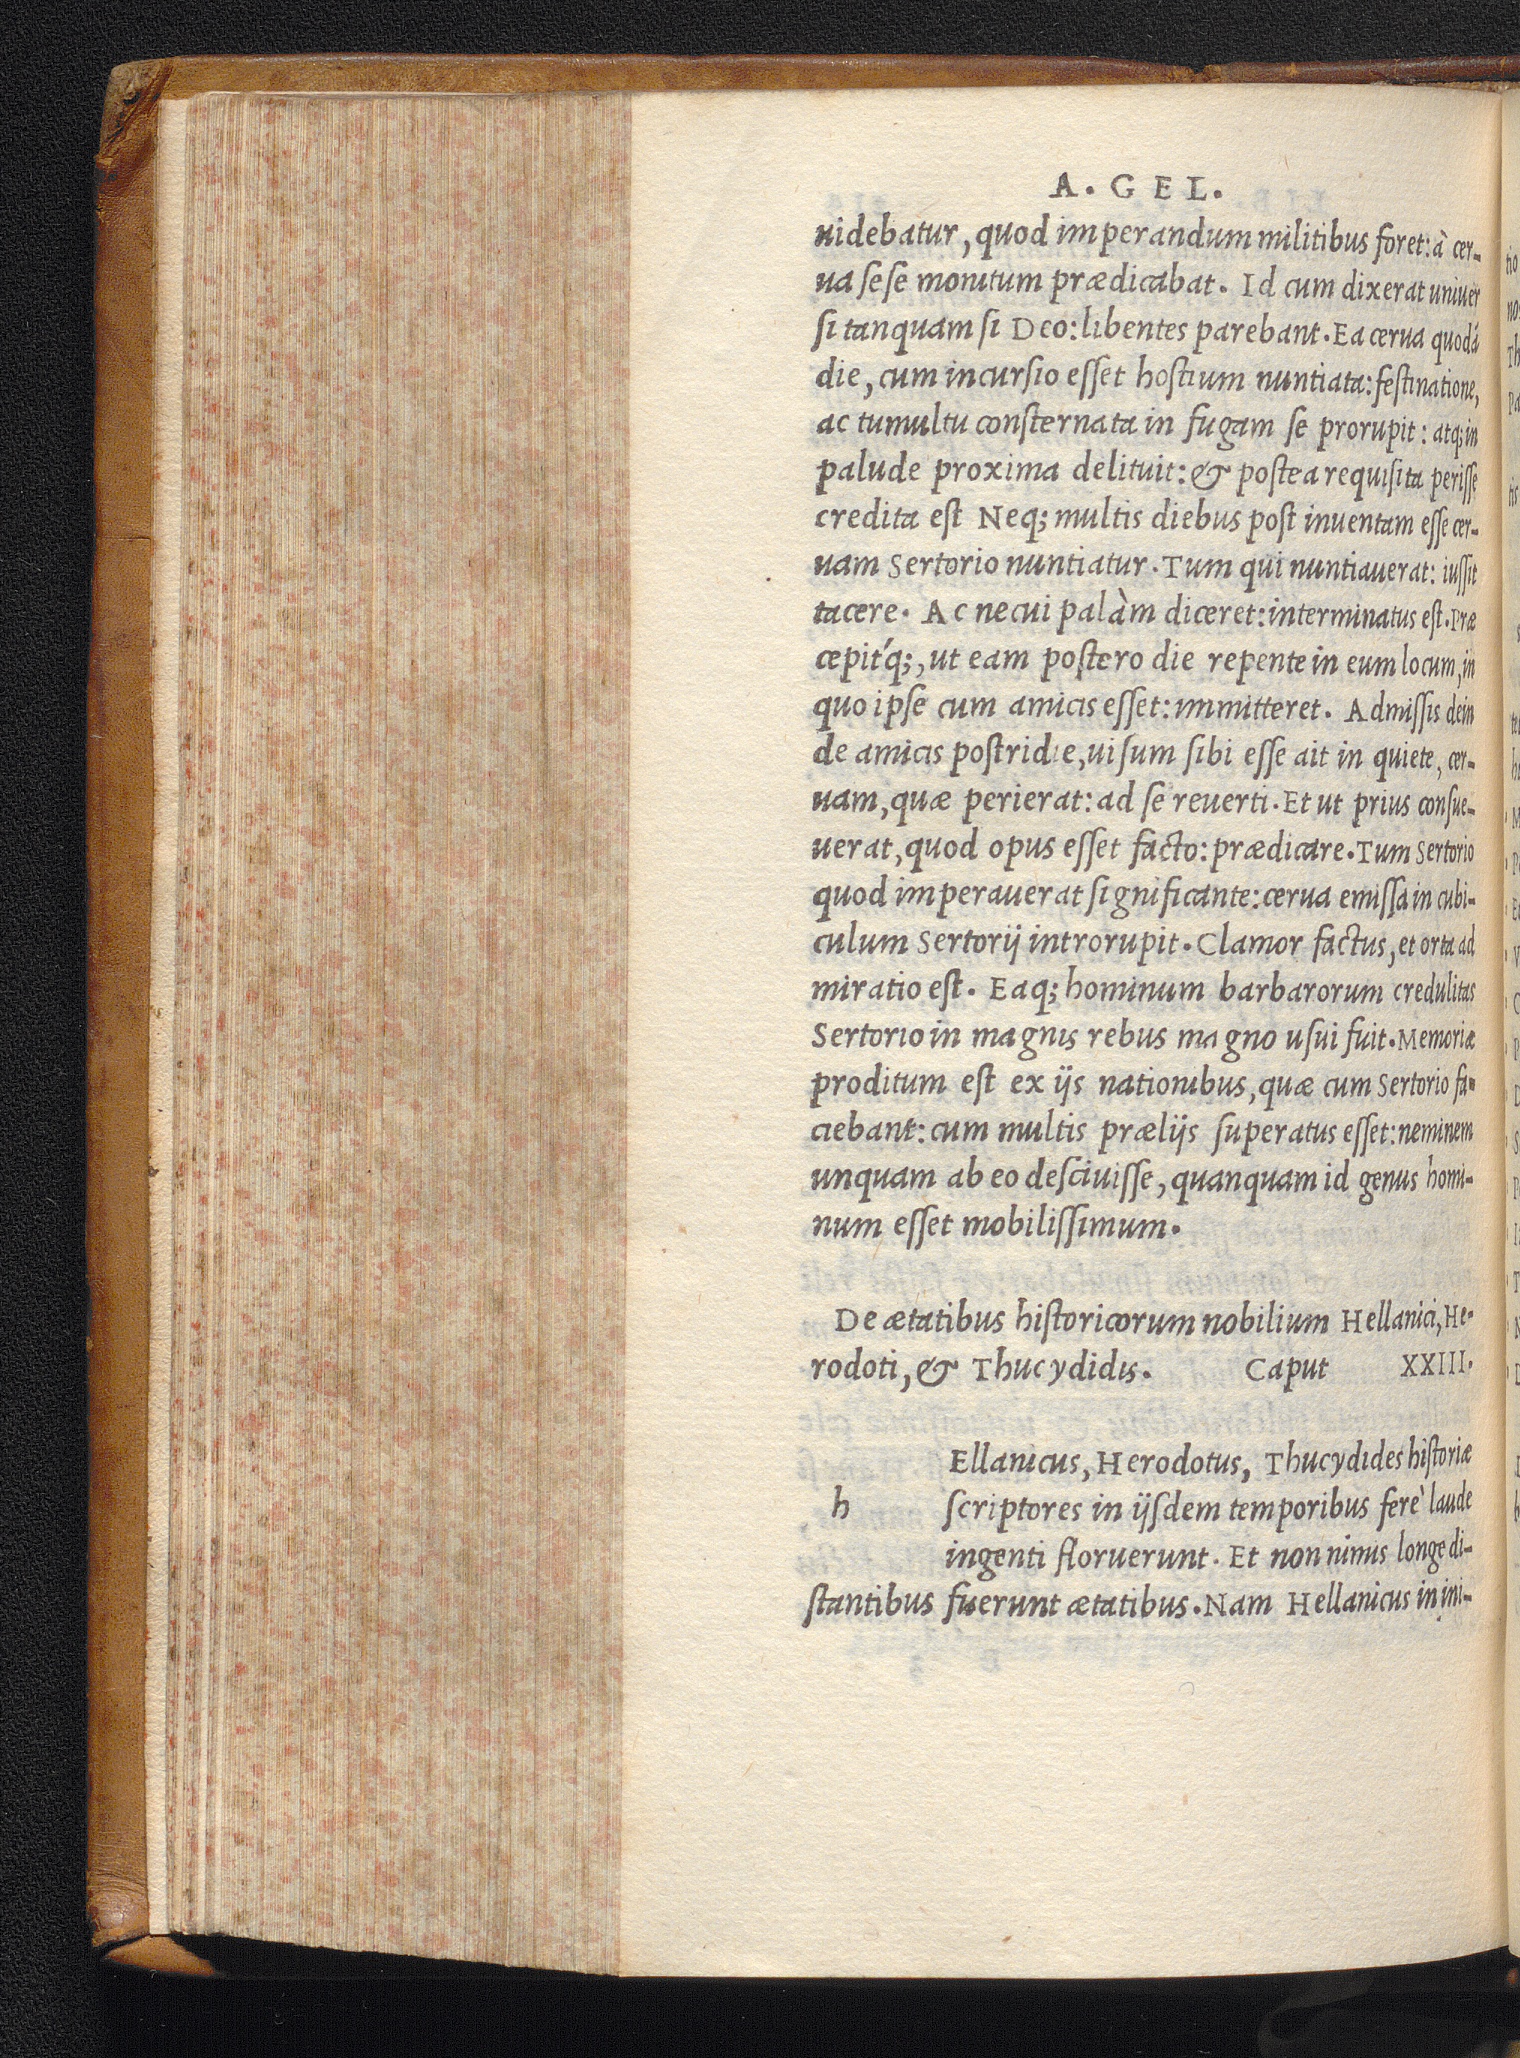 A. GEL.
uidebatur, quod imperandum militibus foret: à cer-
ua sese monitum prædicabat. Id cum dixerat uniuer
si tanquam si Deo: libentes parebant. Ea cerua quodã
die, cum incursio esset hostium nuntiata: festinatione,
ac tumultu consternata in fugam se prorupit: atq; in
palude proxima delituit: & postea requisita perisse
credita est Neq; multis diebus post inuentam esse cer-
uam Sertorio nuntiatur. Tum qui nuntiauerat: iussit
tacere. Ac necui palàm diceret: interminatus est. Præ
cepit'q;, ut eam postero die repente in eum locum, in
quo ipse cum amicis esset: immitteret. Admissis dein
de amicis postridie, uisum sibi esse ait in quiete, cer-
uam, quæ perierat: ad se reuerti. Et ut prius consue-
uerat, quod opus esset facto: prædicare. Tum Sertorio
quod imperauerat significante: cerua emissa in cubi-
culum Sertorij introrupit. Clamor factus, et orta ad
miratio est. Eaq; hominum barbarorum credulitas
Sertorio in magnis rebus magno usui fuit. Memoriæ
proditum est ex ijs nationibus, quæ cum Sertorio fa-
ciebant: cum multis prælijs superatus esset: neminem
unquam ab eo desciuisse, quanquam id genus homi-
num esset mobilissimum.
De ætatibus historicorum nobilium Hellanici, He-
rodoti, & Thucydidis. Caput XXIII.
Ellanicus, Herodotus, Thucydides historiæ
h scriptores in ijsdem temporibus ferè laude
ingenti floruerunt. Et non nimis longe di-
stantibus fuerunt ætatibus. Nam Hellanicus in ini-